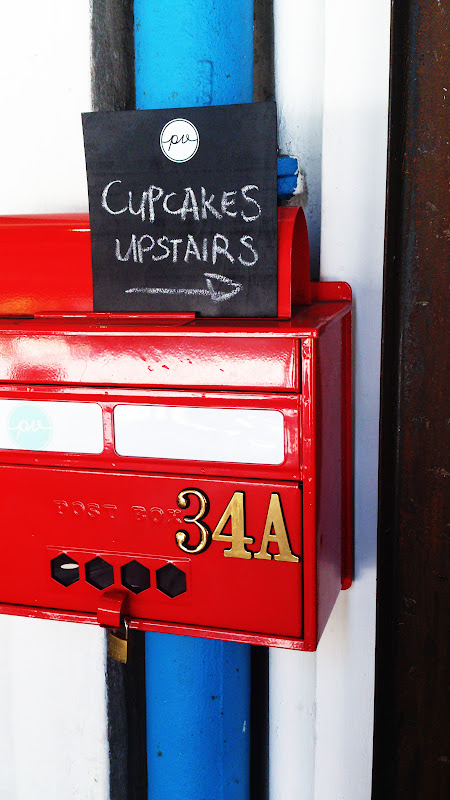 pv
CUPCAKES
UPSTAIRS
pv
POST BOX
34A